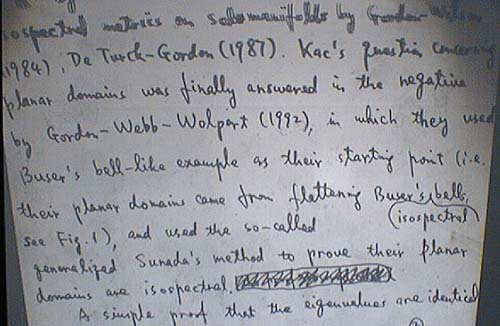 isospectral metrics on solvmanifolds by Gordon-Wilson
(1984), De Turck-Gordon (1987). Kac's question concerning
planar domains was finally answered in the negative
by Gordon-Webb-Wolpert (1992), in which they used
Buser's bell-like example as their starting point (i.e.
their planar domains came from flattening Buser's bells,
(isospectral)
see Fig. 1), and used the so-called
generalized Sunada's method to prove their planar
domains are isospectral.
A simple proof that the eigenvalues are identical